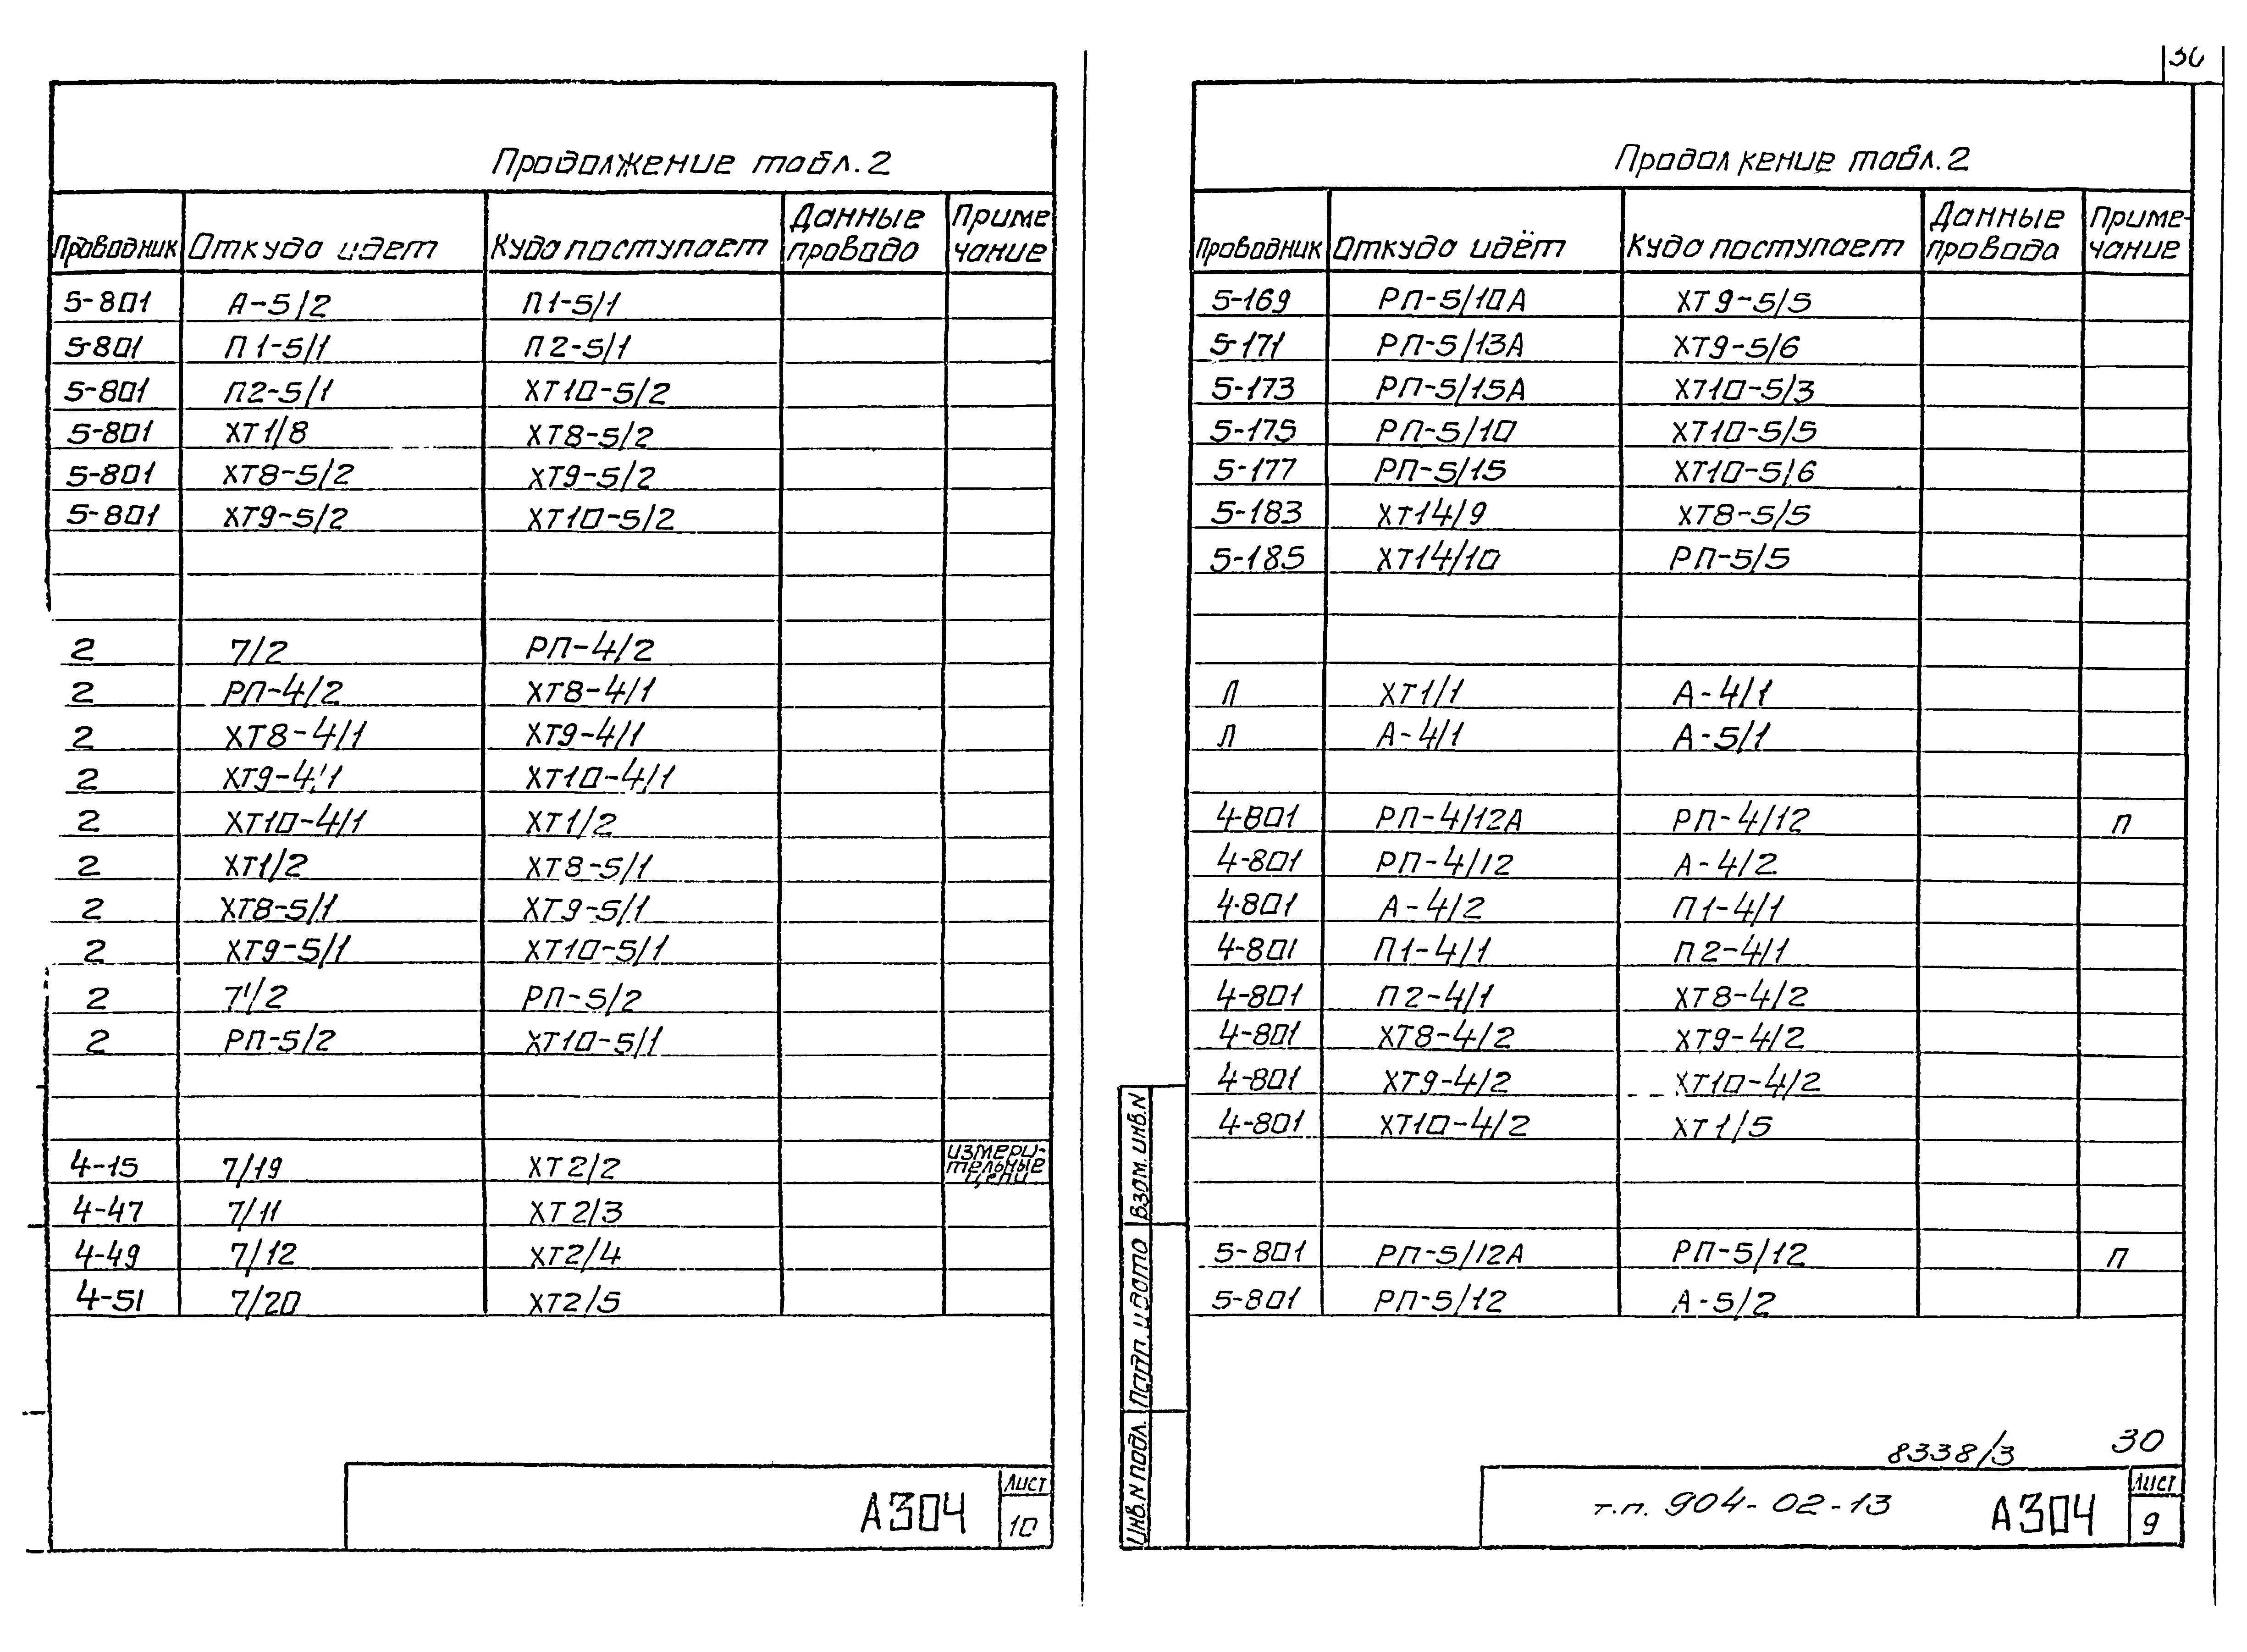 Продолжение табл.2
Проводник Откуда идет Куда поступает Данные провода Приме чание
5-801 А-5/2 П1-5/1
5-801 П1-5/1 П2-5/1
5-801 П2-5/1 ХТ10-5/2
5-801 ХТ1/8 ХТ8-5/2
5-801 ХТ8-5/2 ХТ9-5/2
5-801 ХТ9-5/2 ХТ10-5/2
2 7/2 РП-4/2
2 РП-4/2 ХТ8-4/1
2 ХТ8-4/1 ХТ9-4/1
2 ХТ9-4/1 ХТ10-4/1
2 ХТ10-4/1 ХТ1/2
2 ХТ1/2 ХТ8-5/1
2 ХТ8-5/1 ХТ9-5/1
2 ХТ9-5/1 ХТ10-5/1
2 7'/2 РП-5/2
2 РП-5/2 ХТ10-5/1
4-15 7/19 ХТ2/2 измери-тельные цепи
4-47 7/11 ХТ2/3
4-49 7/12 ХТ2/4
4-51 7/20 ХТ2/5
А304
Лист
10
Продолжение табл.2
Проводник Откуда идёт Куда поступает Данные провода Приме-чание
5-169 РП-5/10А ХТ9-5/5
5-171 РП-5/13А ХТ9-5/6
5-173 РП-5/15А ХТ10-5/3
5-175 РП-5/10 ХТ10-5/5
5-177 РП-5/15 ХТ10-5/6
5-183 ХТ14/9 ХТ8-5/5
5-185 ХТ14/10 РП-5/5
Л ХТ1/1 А-4/1
Л А-4/1 А-5/1
4-801 РП-4/12А РП-4/12 П
4-801 РП-4/12 А-4/2
4-801 А-4/2 П1-4/1
4-801 П1-4/1 П2-4/1
4-801 П2-4/1 ХТ8-4/2
4-801 ХТ8-4/2 ХТ9-4/2
4-801 ХТ9-4/2 ХТ10-4/2
4-801 ХТ10-4/2 ХТ1/5
5-801 РП-5/12А РП-5/12 П
5-801 РП-5/12 А-5/2
Взам. инв.N
Подп. и дата
Инв.N подл.
8338/3 30
т.п. 904-02-13 А304
Лист
9